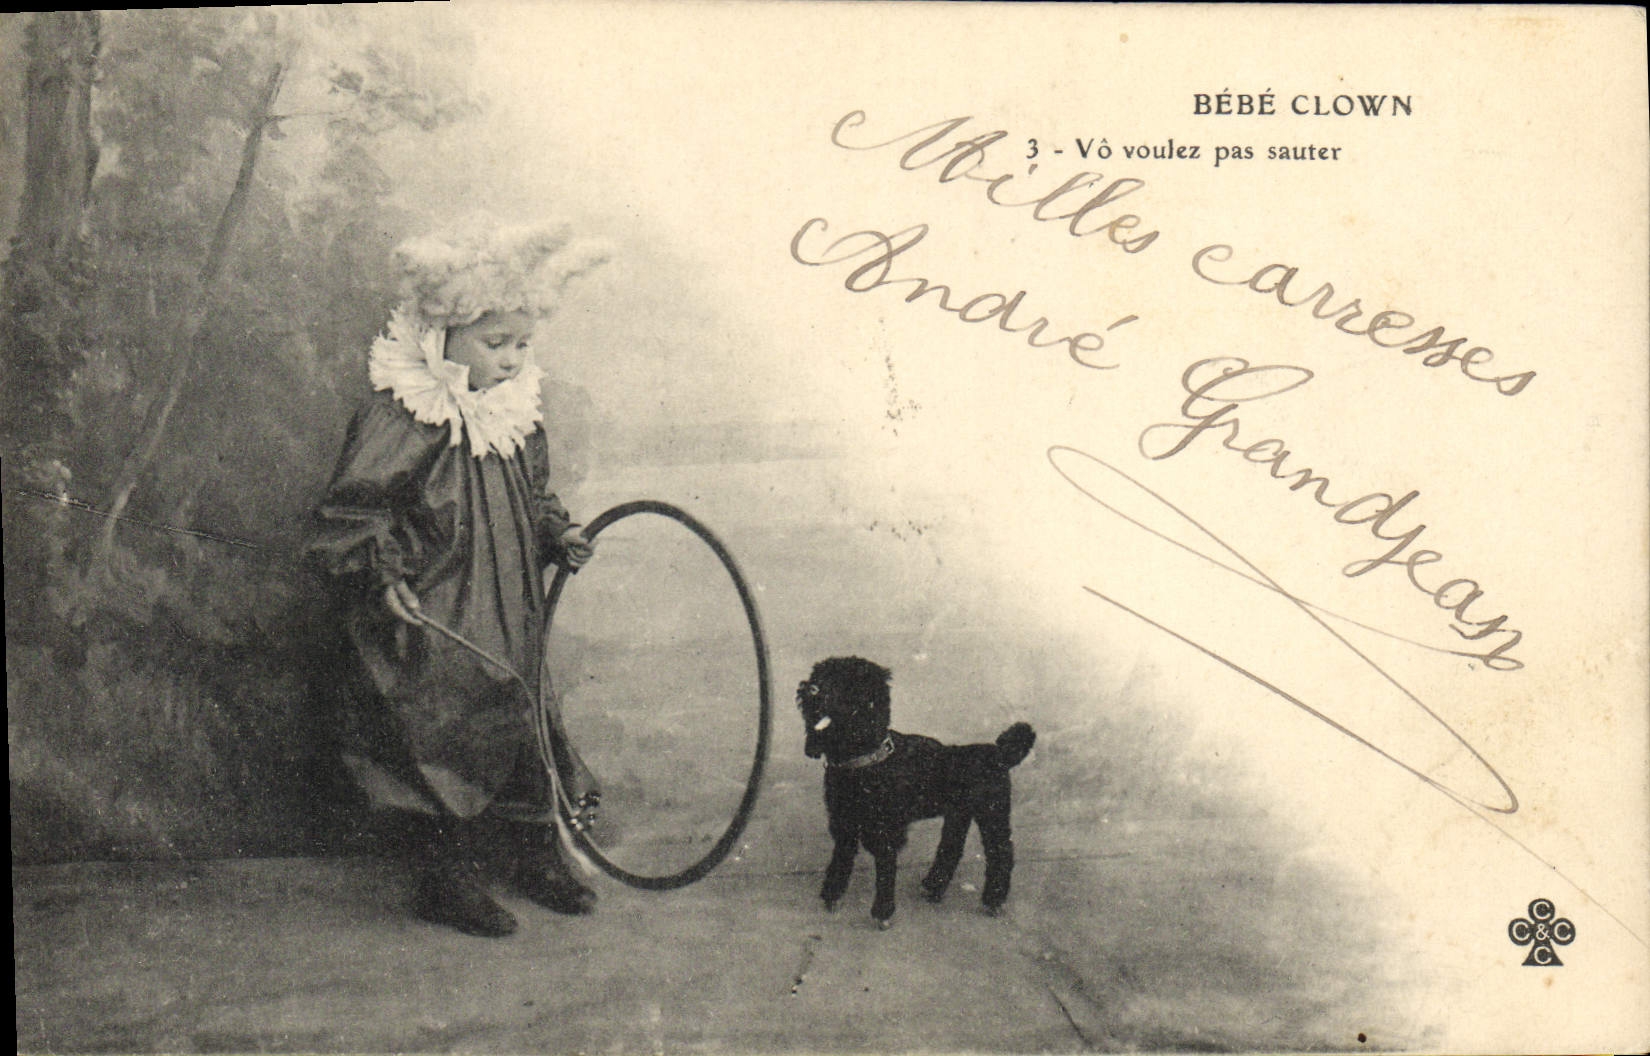 BÉBÉ CLOWN
3 - Vô voulez pas sauter
Milles carresses
André Grandjean
C
C & C
C